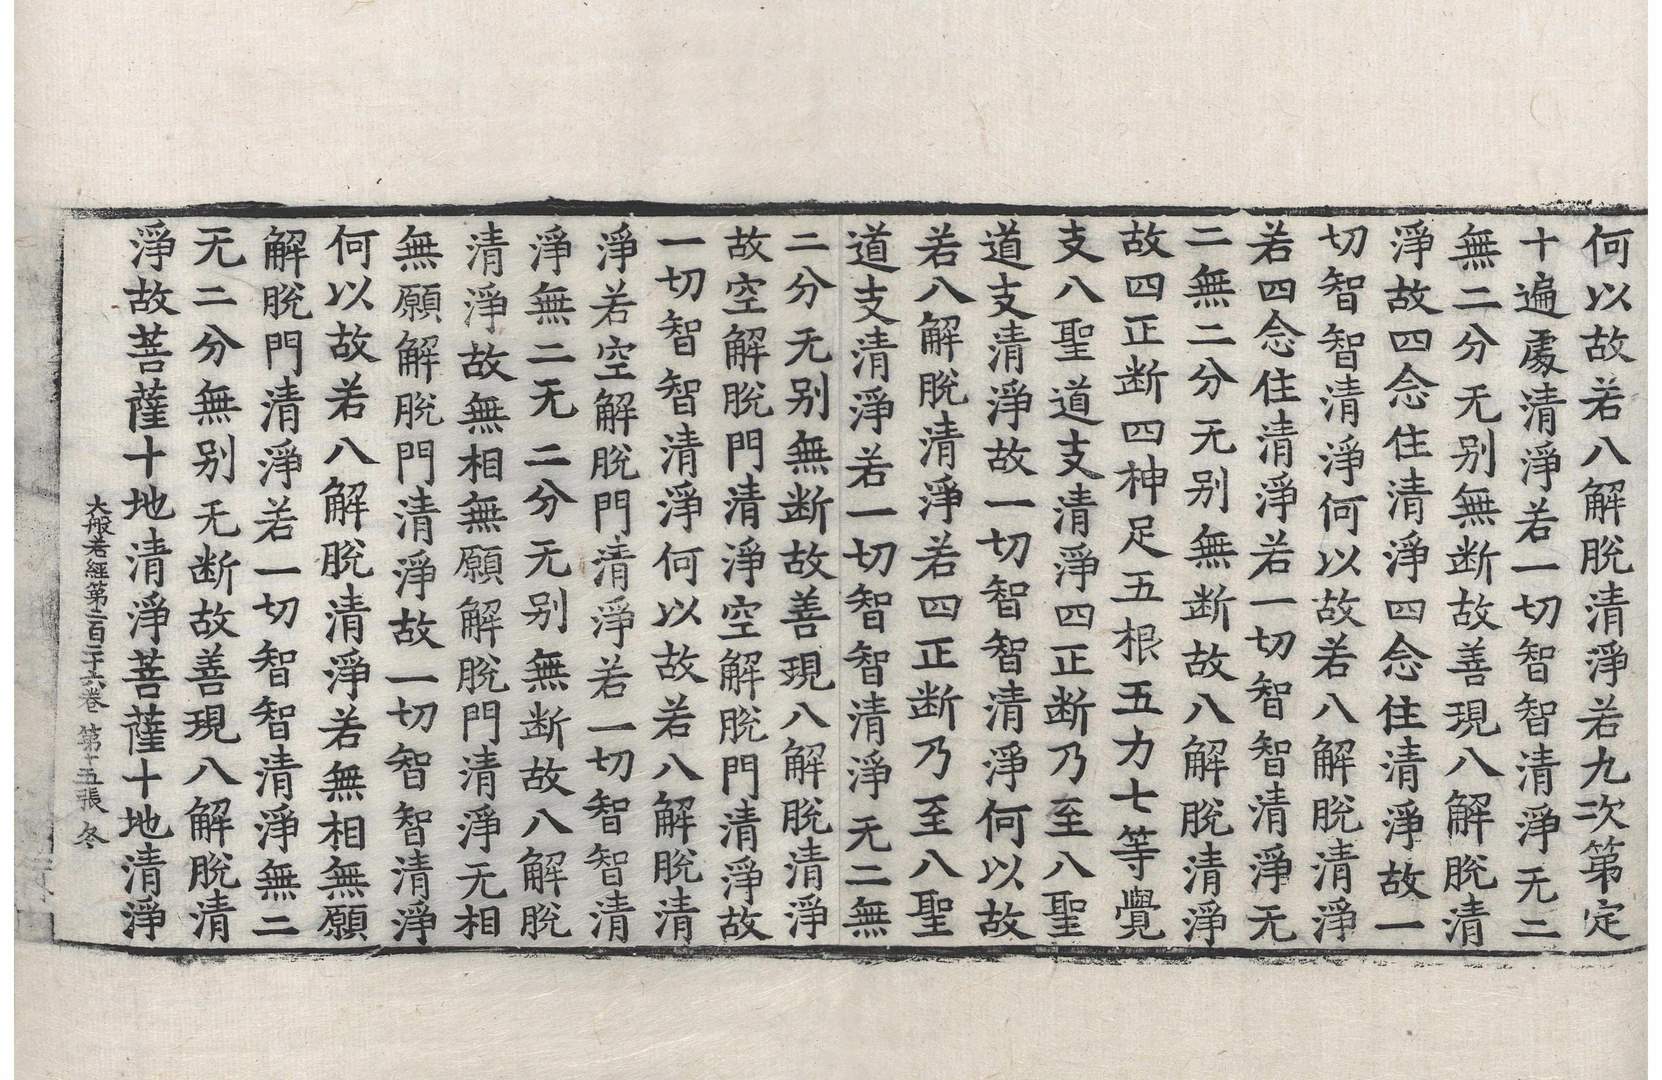 何以故若八解脫清淨若九次第定
十遍處清淨若一切智智清淨无二
無二分无别無断故善現八解脫清
淨故四念住清淨四念住清淨故一
切智智清淨何以故若八解脫清淨
若四念住清淨若一切智智清淨无
二無二分无别無断故八解脫清淨
故四正断四神足五根五力七等覺
支八聖道支清淨四正断乃至八聖
道支清淨故一切智智清淨何以故
若八解脫清淨若四正断乃至八聖
道支清淨若一切智智清淨无二無
二分无别無断故善現八解脫清淨
故空解脫門清淨空解脫門清淨故
一切智智清淨何以故若八解脫清
淨若空解脫門清淨若一切智智清
淨無二无二分无别無断故八解脫
清淨故無相無願解脫門清淨无相
無願解脫門清淨故一切智智清淨
何以故若八解脫清淨若無相無願
解脫門清淨若一切智智清淨無二
无二分無别无断故善現八解脫清
淨故菩薩十地清淨菩薩十地清淨
大般若經第二百二十六卷 第十五張 冬